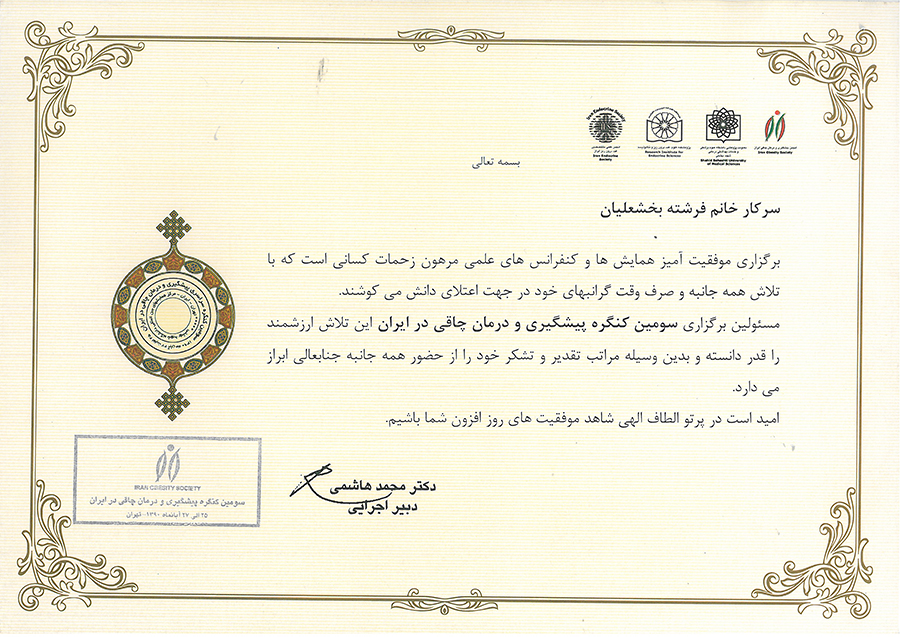 Iran Endocrine Society
Iran Endocrine
Society
Research Institute for
Endocrine Sciences
Shahid Beheshti University
of Medical Sciences
Iran Obesity Society
بسمه تعالی
سرکار خانم فرشته بخشعلیان
برگزاری موفقیت آمیز همایش ها و کنفرانس های علمی مرهون زحمات کسانی است که با
تلاش همه جانبه و صرف وقت گرانبهای خود در جهت اعتلای دانش می کوشند.
مسئولین برگزاری سومین کنگره پیشگیری و درمان چاقی در ایران این تلاش ارزشمند
را قدر دانسته و بدین وسیله مراتب تقدیر و تشکر خود را از حضور همه جانبه جنابعالی ابراز
می دارد.
امید است در پرتو الطاف الهی شاهد موفقیت های روز افزون شما باشیم.
دکتر محمد هاشمی
دبیر اجرایی
IRAN OBESITY SOCIETY
سومین کنگره پیشگیری و درمان چاقی در ایران
۲۵ الی ۲۷ آبانماه ۱۳۹۰-تهران